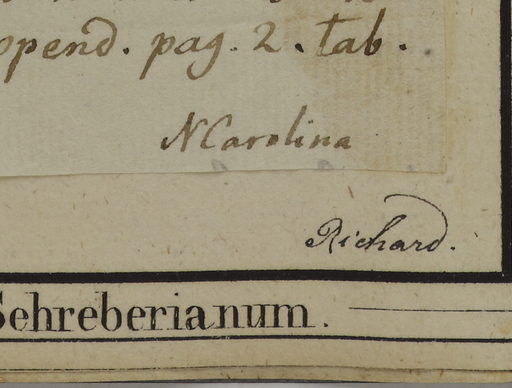 ppend. pag. 2. tab.
NCarolina
Richard.
Schreberianum.